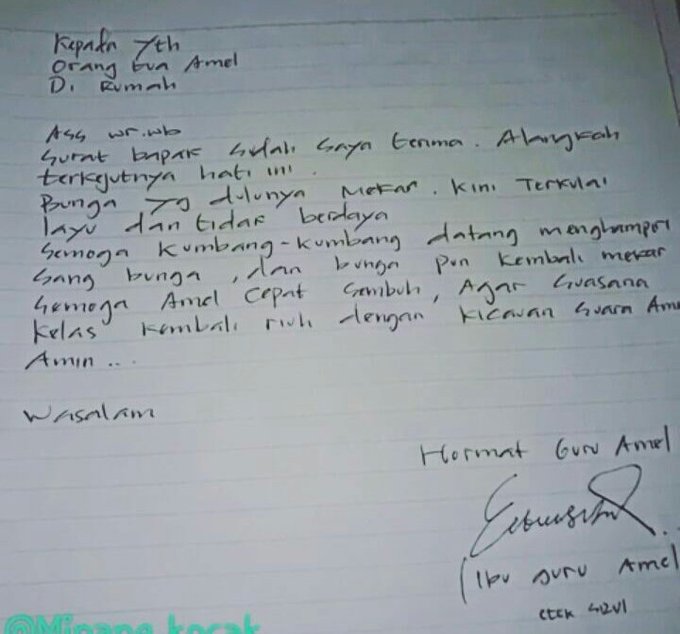 Kepada Yth
Orang tua Amel
Di Rumah
Ass wr.wb
Surat bapak sudah saya terima. Alangkah
terkejutnya hati ini.
Bunga yg dulunya Mekar. Kini Terkulai
layu dan tidak berdaya
Semoga Kumbang-kumbang datang menghampiri
Sang bunga, dan bunga pun kembali mekar
Semoga Amel cepat sembuh, Agar Suasana
Kelas kembali riuh dengan kicauan suara Ame
Amin ...
Wasalam
Hormat Guru Amel
(Ibu Guru Amel
@Minang kocak